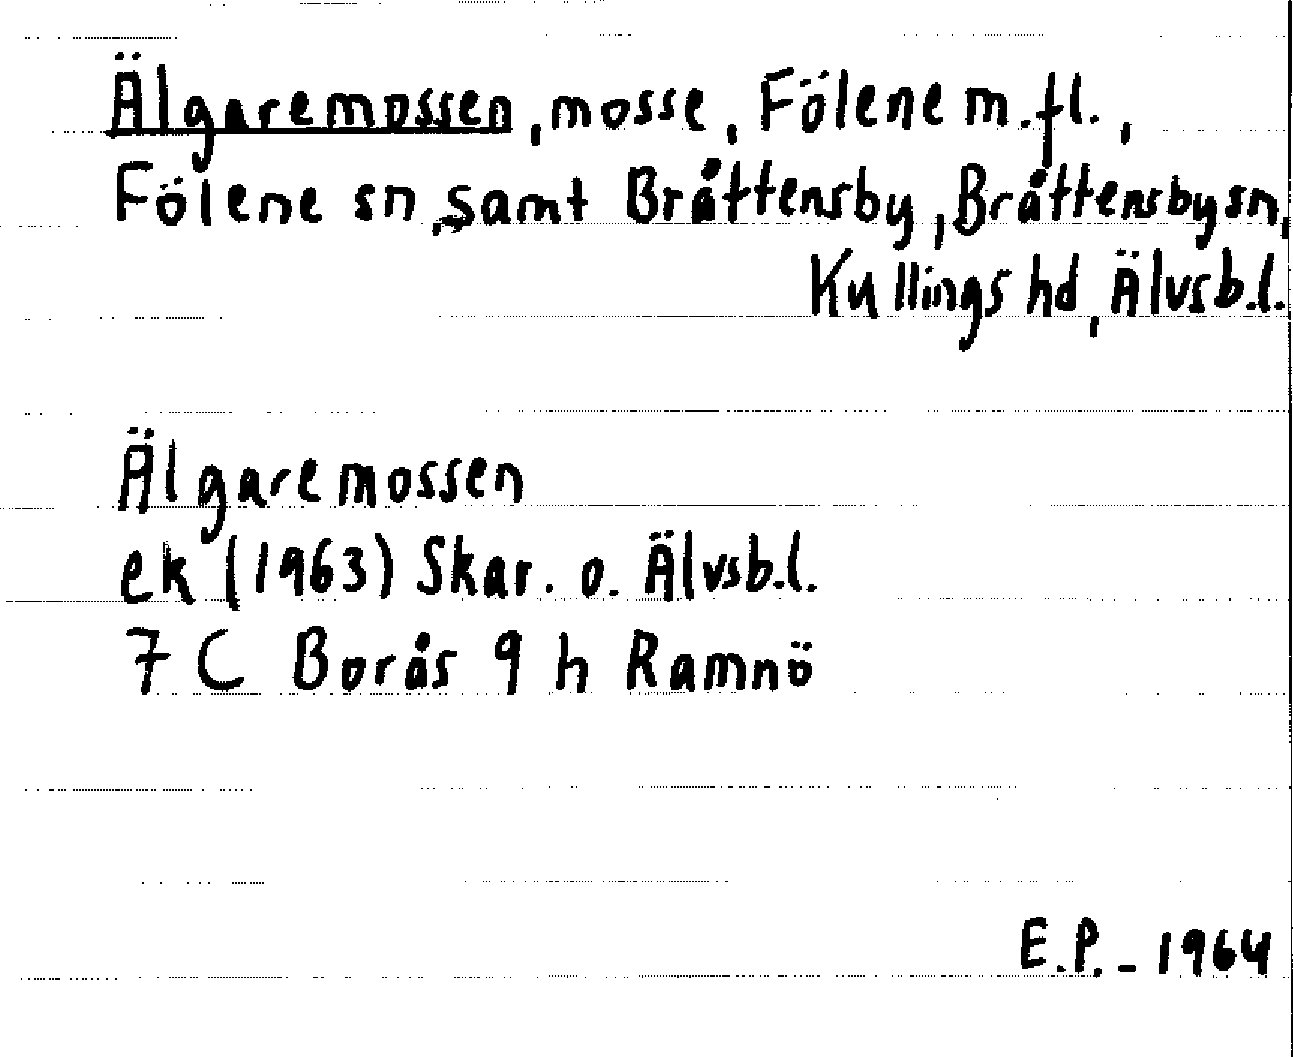 Älgaremossen, mosse, Fölene m.fl.,
Fölene sn, samt Bråttensby, Bråttensby sn,
Kullings hd, Älvsb.l.
Älgaremossen
ek (1963) Skar. o. Älvsb.l.
7 C Borås 9 h Ramnö
E.P. - 1964